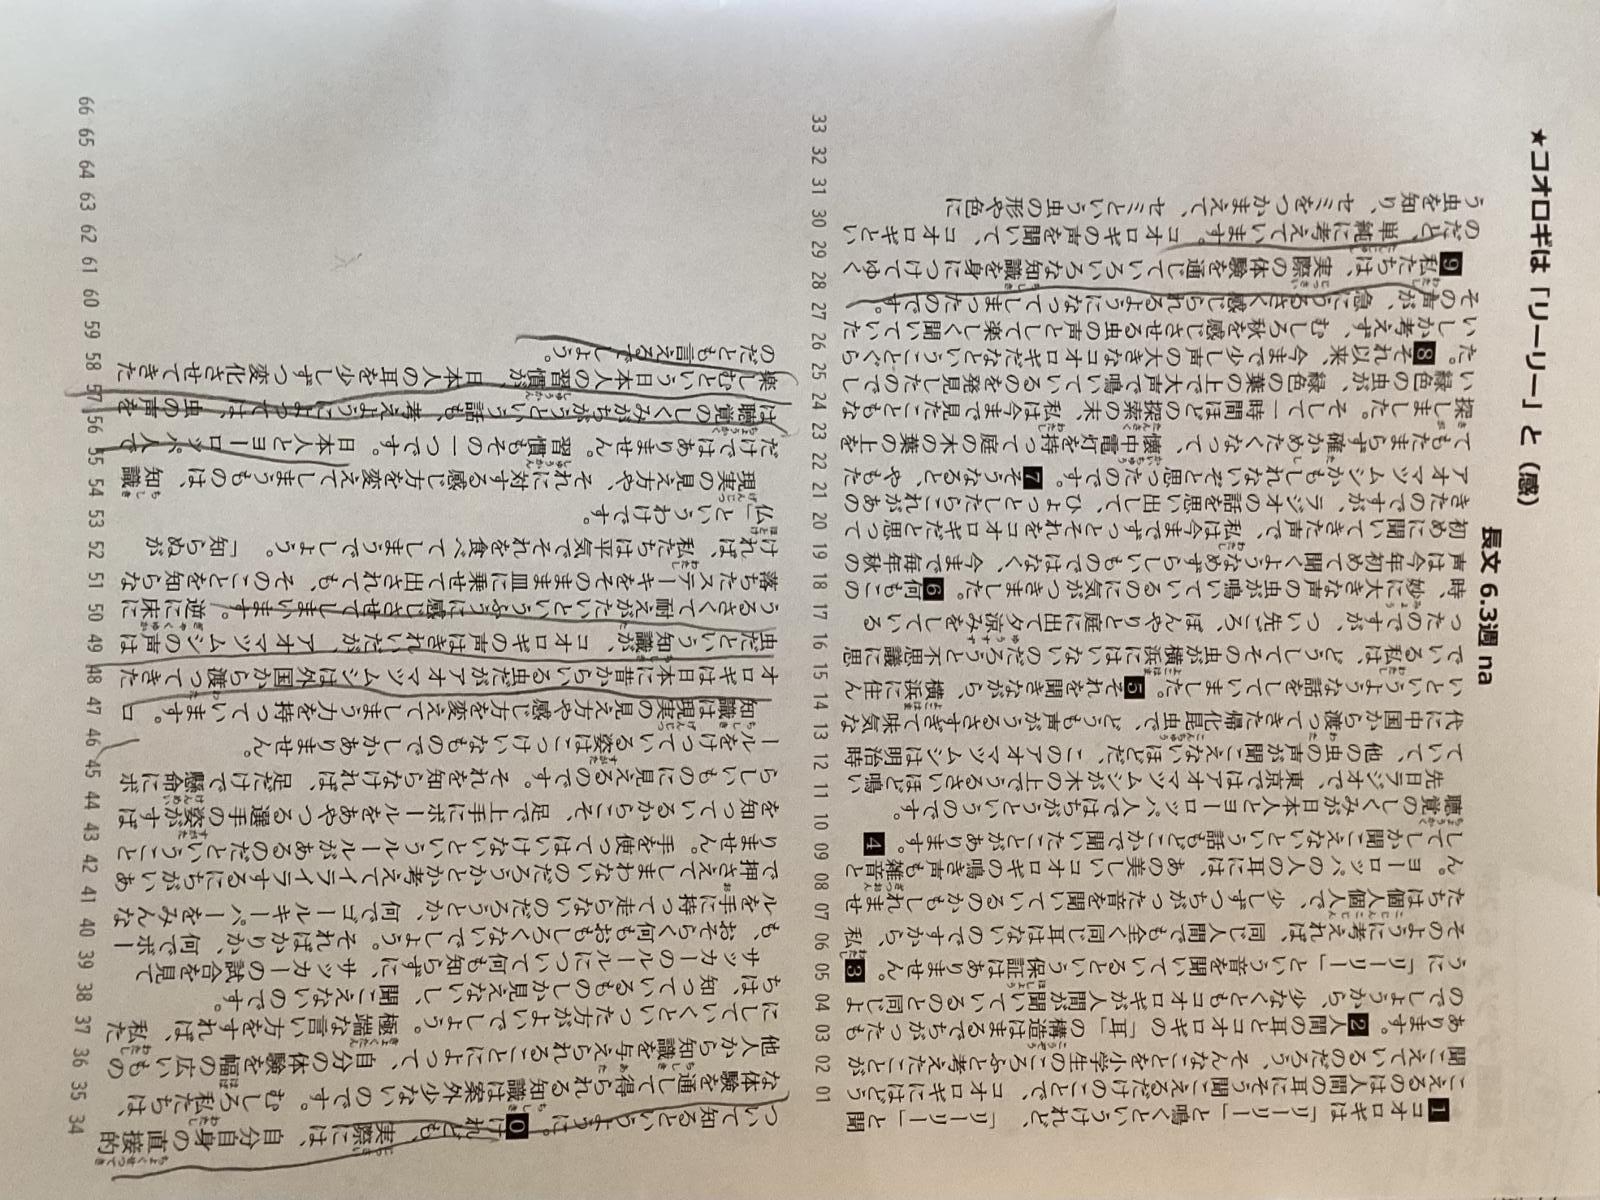 ★コオロギは「リーリー」と(感)
長文 6.3週 na
1コオロギは「リーリー」と鳴くというけれど、「リーリー」と聞
こえるのは人間の耳にそう聞こえるだけのことで、コオロギにはどう
聞こえているのだろう、そんなことを小学生のころふと考えたことが
あります。2人間の耳とコオロギの「耳」の構造はまるでちがったも
のでしょうから、少なくともコオロギが人間が聞いているのと同じよ
うに「リーリー」という音を聞いているという保証はありません。3
そのように考えれば、同じ人間でも全く同じ耳はないのですから、私
たちは個人個人で、少しずつちがった音を聞いているのかもしれませ
ん。ヨーロッパの人の耳には、あの美しいコオロギの鳴き声も雑音と
してしか聞こえないという話もどこかで聞いたことがあります。4
聴覚のしくみが日本人とヨーロッパ人ではちがうというのです。
先日ラジオで、東京ではアオマツムシが木の上でうるさいほど鳴い
ていて、他の虫の声が聞こえないほどだ、このアオマツムシは明治時
代に中国から渡ってきた帰化昆虫で、どうも声がうるさすぎて味気な
いというような話をしていました。5それを聞きながら、横浜に住ん
でいる私は、どうしてその虫が横浜にはいないのだろうと不思議に思
ったのですが、つい先日、ぼんやりと庭に出て夕涼みをしている
時、妙に大きな声の虫が鳴いているのに気がつきました。6何もこの
声は今年初めて聞くようなめずらしいものではなく、今まで毎年秋の
初めに聞いてきた声で、私は今までずっとそれをコオロギだと思って
きたのですが、ラジオの話を思い出して、ひょっとしたらこれがあの
アオマツムシかもしれないぞと思ったのです。7そうなると、やもた
てもたまらず確かめたくなって、懐中電灯を持って庭の木の葉の上を
探しました。そして一時間ほどの探索の末、私は今まで見たこともな
い緑色の虫が、緑色の葉の上で大声で鳴いているのを発見したのでし
た。8それ以来、今まで少し声の大きなコオロギだなということぐら
いしか考えず、むしろ秋を感じさせる虫の声として楽しく聞いていた
その声が、急にうるさく感じられるようになってしまったのです。
9私たちは、実際の体験を通じていろいろな知識を身につけてゆく
のだと、単純に考えています。コオロギの声を聞いて、コオロギとい
う虫を知り、セミをつかまえて、セミという虫の形や色に
01 02 03 04 05 06 07 08 09 10 11 12 13 14 15 16 17 18 19 20 21 22 23 24 25 26 27 28 29 30 31 32 33
ついて知るというように。10けれども、実際には、自分自身の直接的
な体験を通して得られる知識は案外少ないのです。むしろ私たちは、
他人から知識を与えられることによって、自分の体験を幅の広いもの
にしていくといった方がよいでしょう。極端な言い方をすれば、私た
ちは、知っているものしか見えないし、聞こえないのです。
サッカーのルールについて何も知らずに、サッカーの試合を見て
も、おそらく何もおもしろくないでしょう。そればかりか、何でボー
ルを手に持って走らないのだろうとか、何でゴールキーパーをみんな
で押さえてしまわないのだろうかとか考えてイライラするにちがいあ
りません。手を使ってはいけないというルールがあるのだということ
を知っているからこそ、足で上手にボールをあやつる選手の姿がすば
らしいものに見えるのです。それを知らなければ、足だけで懸命にボ
ールをけっている姿はこっけいなものでしかありません。
知識は現実の見え方や感じ方を変えてしまう力を持っています。コ
オロギは日本に昔からいる虫だがアオマツムシは外国から渡ってきた
虫だという知識が、コオロギの声はきれいだが、アオマツムシの声は
うるさくて耐えがたいというふうに感じさせてしまいます。逆に床に
落ちたステーキをそのまま皿に乗せて出されても、そのことを知らな
ければ、私たちは平気でそれを食べてしまうでしょう。「知らぬが
仏」というわけです。
現実の見え方や、それに対する感じ方を変えてしまうものは、知識
だけではありません。習慣もその一つです。日本人とヨーロッパ人で
は聴覚のしくみがちがうという話も、考えようによっては、虫の声を
楽しむという日本人の習慣が、日本人の耳を少しずつ変化させてきた
のだとも言えるでしょう。
34 35 36 37 38 39 40 41 42 43 44 45 46 47 48 49 50 51 52 53 54 55 56 57 58 59 60 61 62 63 64 65 66